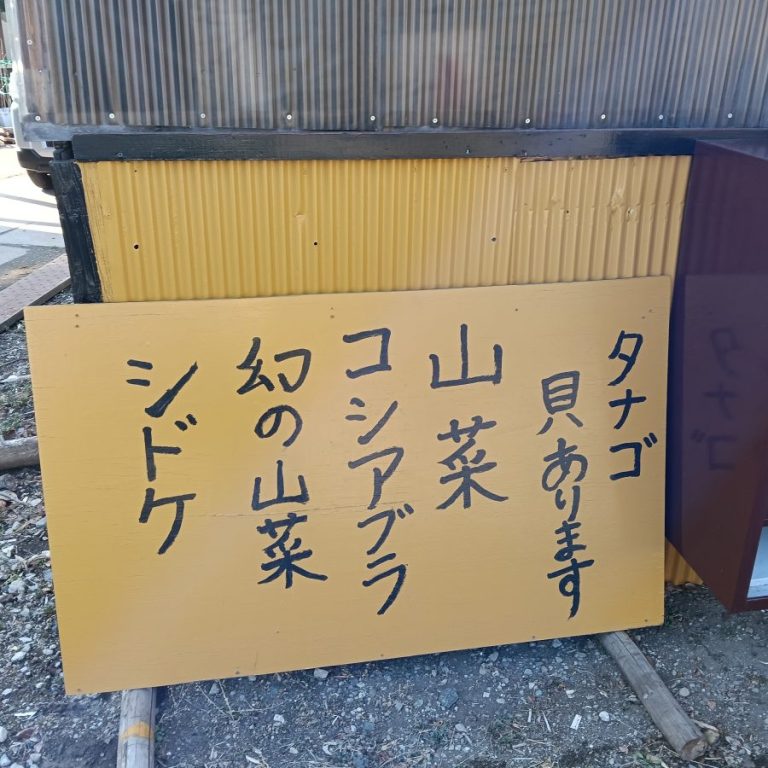 タナゴ
貝あります
山菜
コシアブラ
幻の山菜
シドケ
タナゴ